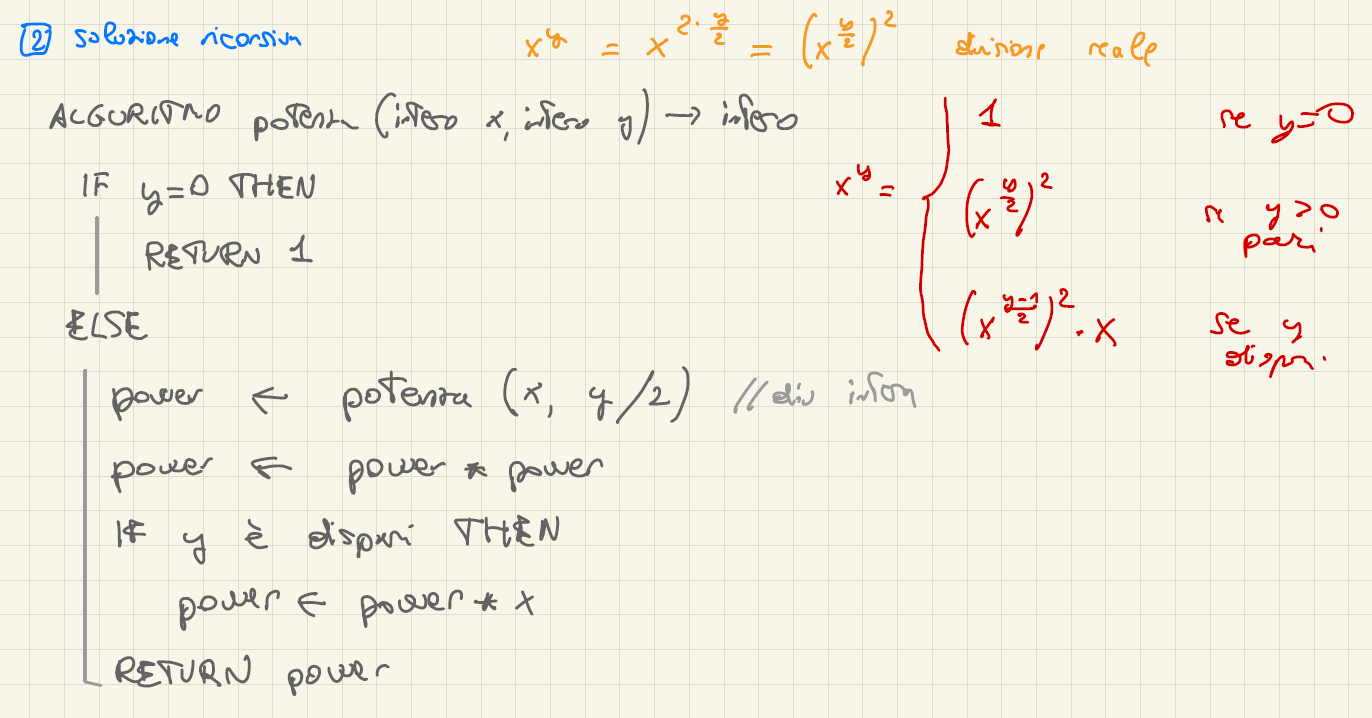 [2] soluzione ricorsiva
x^y = x^{2 · y/2} = (x^{y/2})^2 divisione reale
ALGORITMO potenza (intero x, intero y) → intero
IF y=0 THEN
RETURN 1
ELSE
power ← potenza (x, y/2) // div intera
power ← power * power
IF y è dispari THEN
power ← power * x
RETURN power
x^y = {
1 se y=0
(x^{y/2})^2 se y>0 pari
(x^{(y-1)/2})^2 · x se y dispari